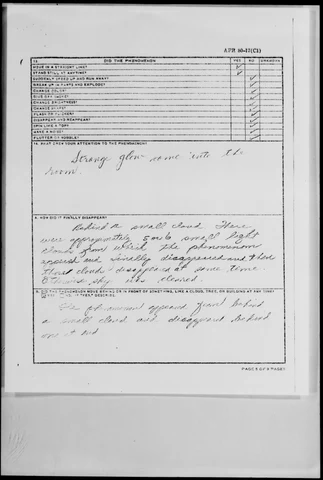 AFR 80-17(C1)
12. DID THE PHENOMENON YES NO UNKNOWN
MOVE IN A STRAIGHT LINE?
STAND STILL AT ANYTIME?
SUDDENLY SPEED UP AND RUN AWAY?
BREAK UP IN PARTS AND EXPLODE?
CHANGE COLOR?
GIVE OFF SMOKE?
CHANGE BRIGHTNESS?
CHANGE SHAPE?
FLASH OR FLICKER?
DISAPPEAR AND REAPPEAR?
SPIN LIKE A TOP?
MAKE A NOISE?
FLUTTER OR WOBBLE?
WHAT DREW YOUR ATTENTION TO THE PHENOMENON?
Strange glow came into the
room.
A. HOW DID IT FINALLY DISAPPEAR?
Behind a small cloud. There
were 5 or 6 small light
clouds from which the phenomenon
and finally disappeared and then
cloud disappeared at same time.
sky was cleared.
B. DID THE PHENOMENON MOVE BEHIND OR IN FRONT OF SOMETHING, LIKE A CLOUD, TREE, OR BUILDING AT ANY TIME?
YES NO. IF "YES" DESCRIBE.
phenomenon appeared from behind
a small cloud and disappeared behind
one at end